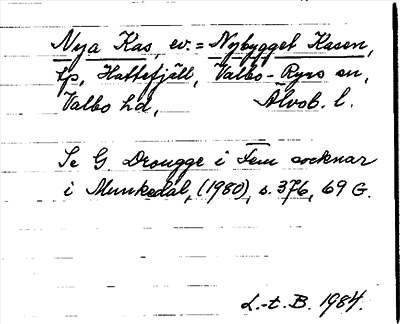 Nya Kas, ev. = Nybygget Kasen,
tp, Hattefjäll, Valbo-Ryrs sn,
Valbo hd, Älvsb. l.
Se G Drougge i Fem socknar
i Munkedal, (1980), s. 376, 69 G.
L.-t. B. 1984.